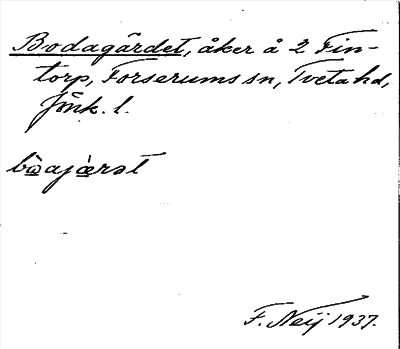 Bodagärdet, åker å 2 Fin-
torp, Forserums sn, Tveta hd,
Jönk. l.
bòajæ̀rət
F. Neij 1937.